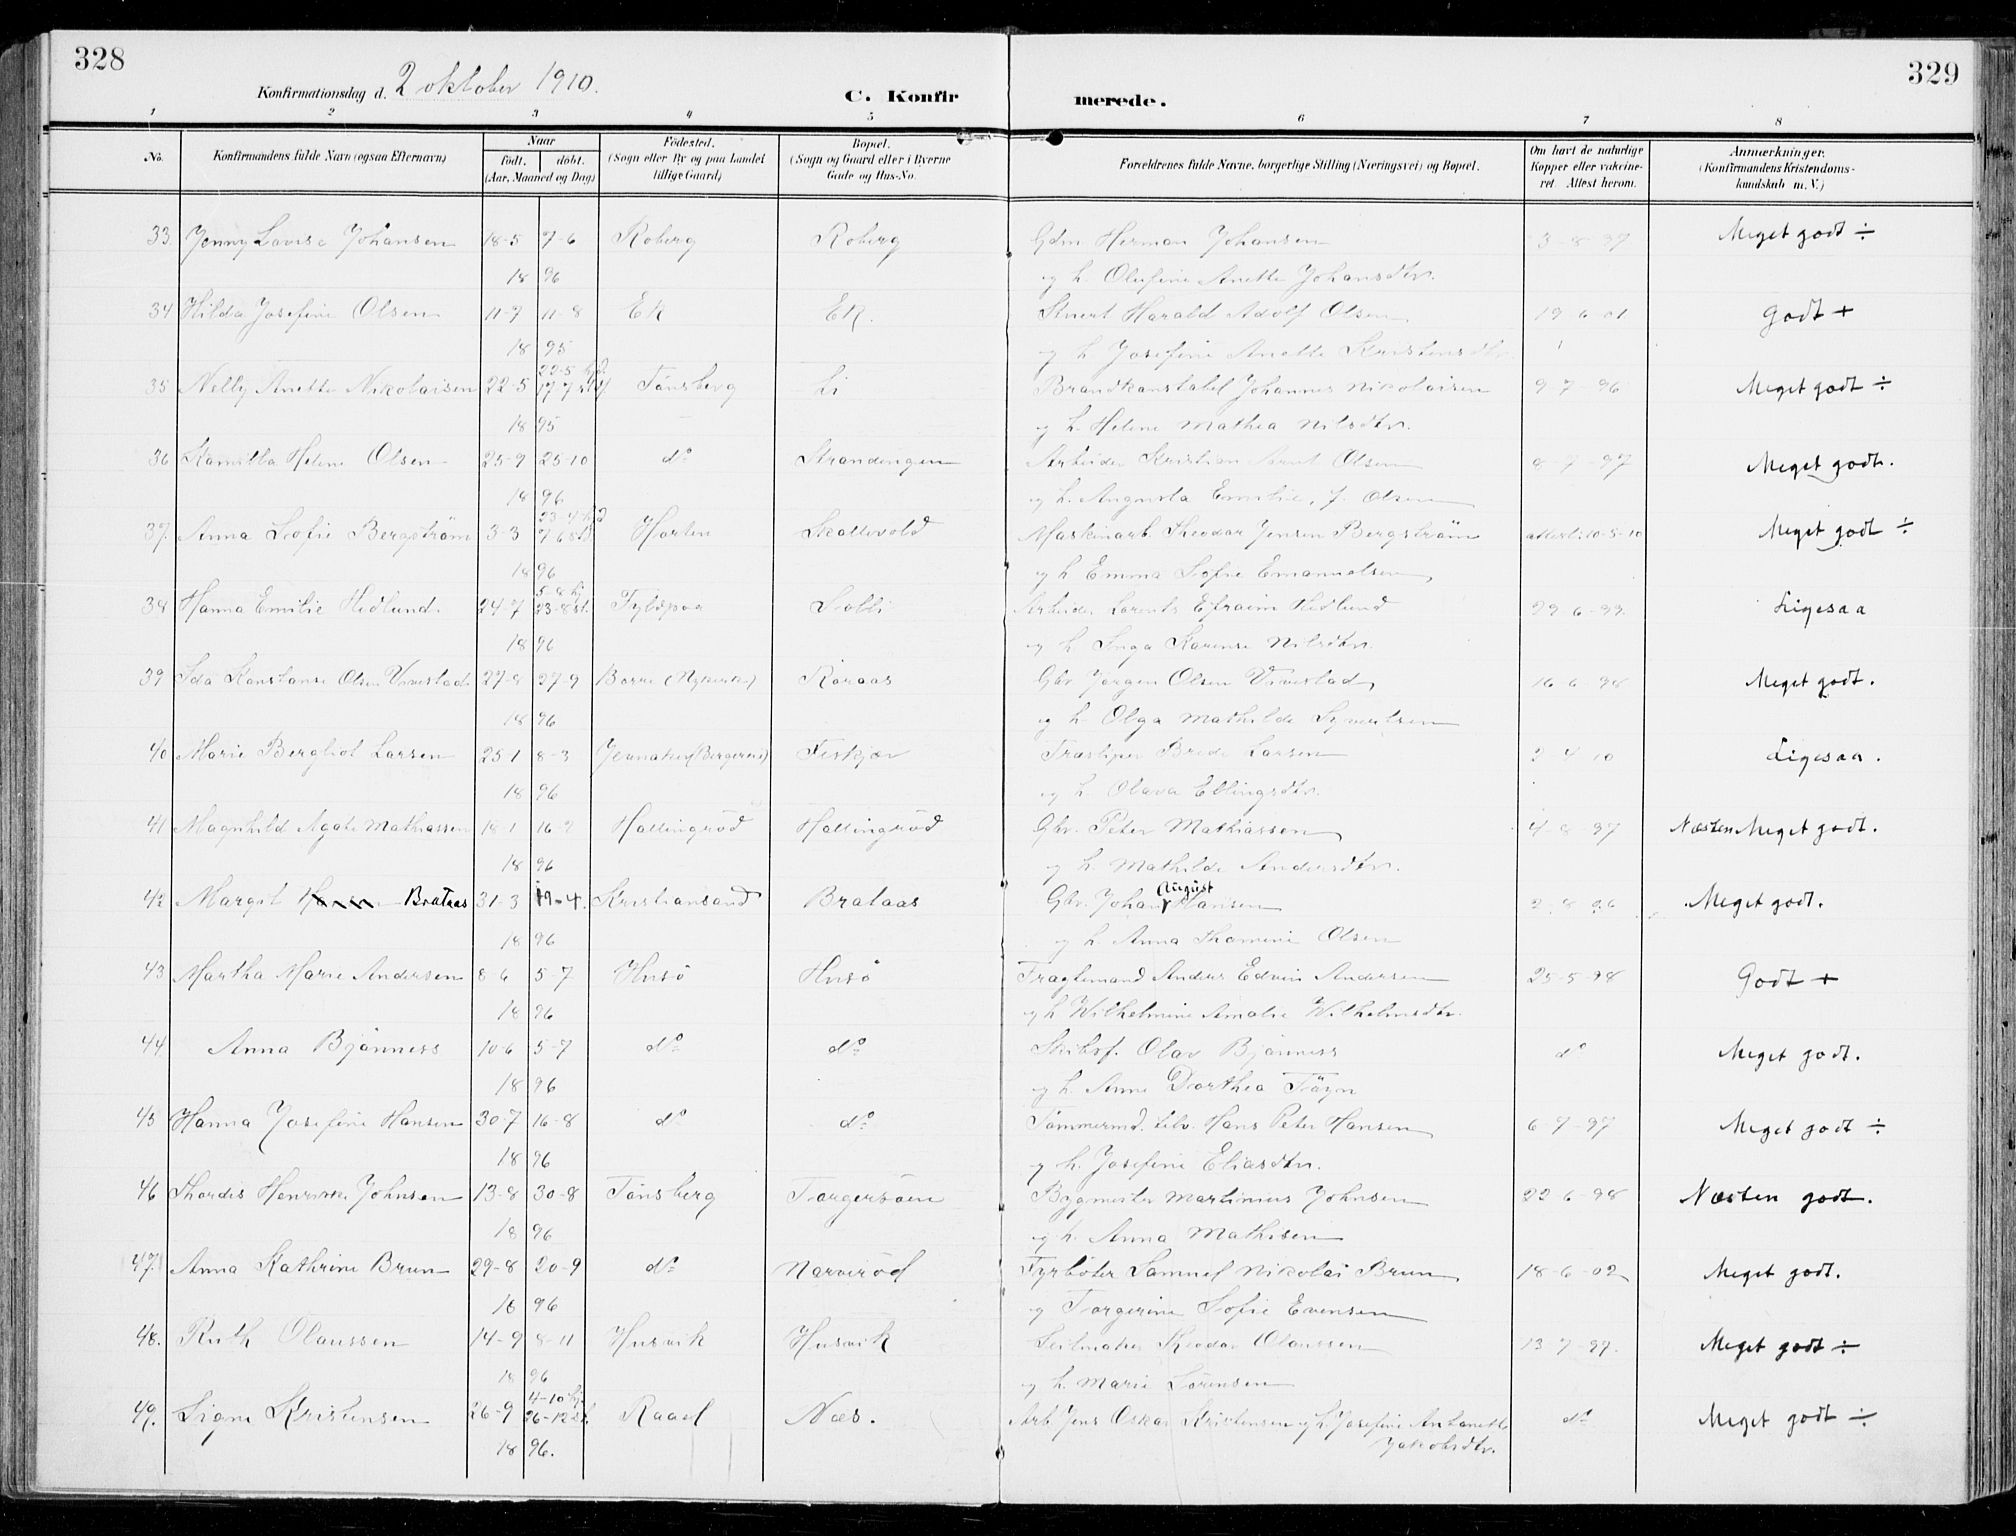 328
329
Konfirmationsdag d. 2 oktober 1910.
C. Konfir merede.
1 2 3 4 5 6 7 8
No.
Konfirmandens fulde Navn (ogsaa Efternavn)
Naar
født. døbt.
(Aar, Maaned og Dag)
Fødested.
(Sogn eller By og paa Landet
tillige Gaard)
Bopæl.
(Sogn og Gaard eller i Byerne
Gade og Hus-No.
Forældrenes fulde Navne, borgerlige Stilling (Næringsvei) og Bopæl.
Om havt de naturlige
Kopper eller vakcine-
ret. Attest herom.
Anmærkninger.
(Konfirmandens Kristendoms-
kundskab m. V.)
33. Jenny Lovise Johansen 18-5 7-6 Roberg Roberg Gdm. Herman Johansen 3-8-97 Meget godt ÷
18 96 og h. Olufine Anette Johansdtr.
34 Hilda Josefine Olsen 11-7 11-8 Ek Ek. Harald Adolf Olsen 19-6-01 Godt +
18 95 og h. Josefine Anette Kristensdtr.
22-5 hjd
35 Nelly Anette Nikolaisen 22-5 17-7 Tønsberg Li Brandkonstabel Johannes Nikolaisen 9-7-96 Meget godt ÷
18 95 og h. Helene Mathea Nilsdtr.
36 Kamilla Helene Olsen 25-9 25-10 do Strandengen Arbeider Kristian Arnt Olsen 8-7-97 Meget godt.
18 96 og h. Augusta Emilie, f. Olsen
23-4 hjd
37. Anna Sofie Bergstrøm 3-3 7-6 st. Horten Skallevold Maskinarb. Theodor Jensen Bergstrøm attest: 10-5-10 Meget godt ÷
18 96 og h Emma Sofie Emanuelsen
5-8 hj
38 Hanna Emilie Hedlund. 24-7 23-8 st. Tyldpaa Solli Arbeider Lorents Efraim Hedlund 29-6-99. Ligesaa
18 96 og h. Inga Karense Nilsdtr.
39 Ida Konstanse Olsen Vivestad 27-8 27-9 Borre (Nykirke) Røraas Gbr. Jørgen Olsen Vivestad 16-6-98 Meget godt.
18 96 og h. Olga Mathilde Syvertsen
40 Marie Bergliot Larsen 25-1 8-3 Feskjær Træsliper Brede Larsen 2-4-10 Ligesaa.
18 96 og h. Olava Ellingsdtr.
41 Magnhild Agate Mathiassen 18-1 16-2 Hallingrød Hallingrød Gbr. Peter Mathiassen 4-8-97 Næsten Meget godt.
18 96 og h. Mathilde Andersdtr.
42 Margit Hansen Brataas 31-3 19-4. Kristiansand Brataas Gbr. Johan August Hansen 2-8-96 Meget godt.
18 96 og h. Anna Thomine Olsen
43 Martha Marie Andersen 8-6 5-7 Husø Husø Fragtemand Anders Edvin Andersen 25-5-98 Godt +
18 96 og h Wilhelmine Amalie Wilhelmsdtr.
44 Anna Bjønness 10-6 5-7 do do Skibsf. Olav Bjønness do Meget godt.
18 96 og h. Anne Dorthea Føyn
45 Hanna Josefine Hansen 30-7 16-8 do do Tømmermd. Hans Peter Hansen 6-7-97 Meget godt ÷
18 96 og h. Josefine Eliasdtr.
46 Thordis Henrikke Johnsen 13-8 30-8 Tønsberg Torgersøen Bygmester Martinius Johnsen 22-6-98 Næsten godt.
18 96 og h. Anna Mathisen
47. Anna Kathrine Brun 29-8 20-9 do Narverød Fyrbøter Samuel Nikolai Brun 18-6-02 Meget godt.
18 96 og Torgerine Sofie Evensen
48. Ruth Olaussen 14-9 8-11 Husvik Husvik Seilmaker Theodor Olaussen 13-7-97. Meget godt ÷
18 96 og h. Marie Sørensen
4-10 hj.
49. Signe Kristensen 26-9 26-12 st. Raael Næs. Arb. Jens Oskar Kristensen og h. Josefine Antonette do Meget godt ÷
18 96. Jakobsdtr.